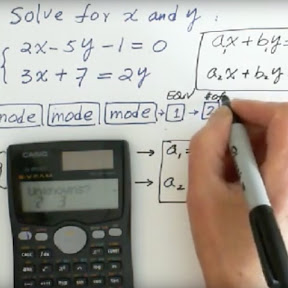 Solve for x and y :
2x - 5y - 1 = 0
3x + 7 = 2y
a₁x + b₁y =
a₂x + b₂y
EQN
mode mode mode → 1 → 2
→ a₁ =
→ a₂
CASIO
Unknowns?
2 3